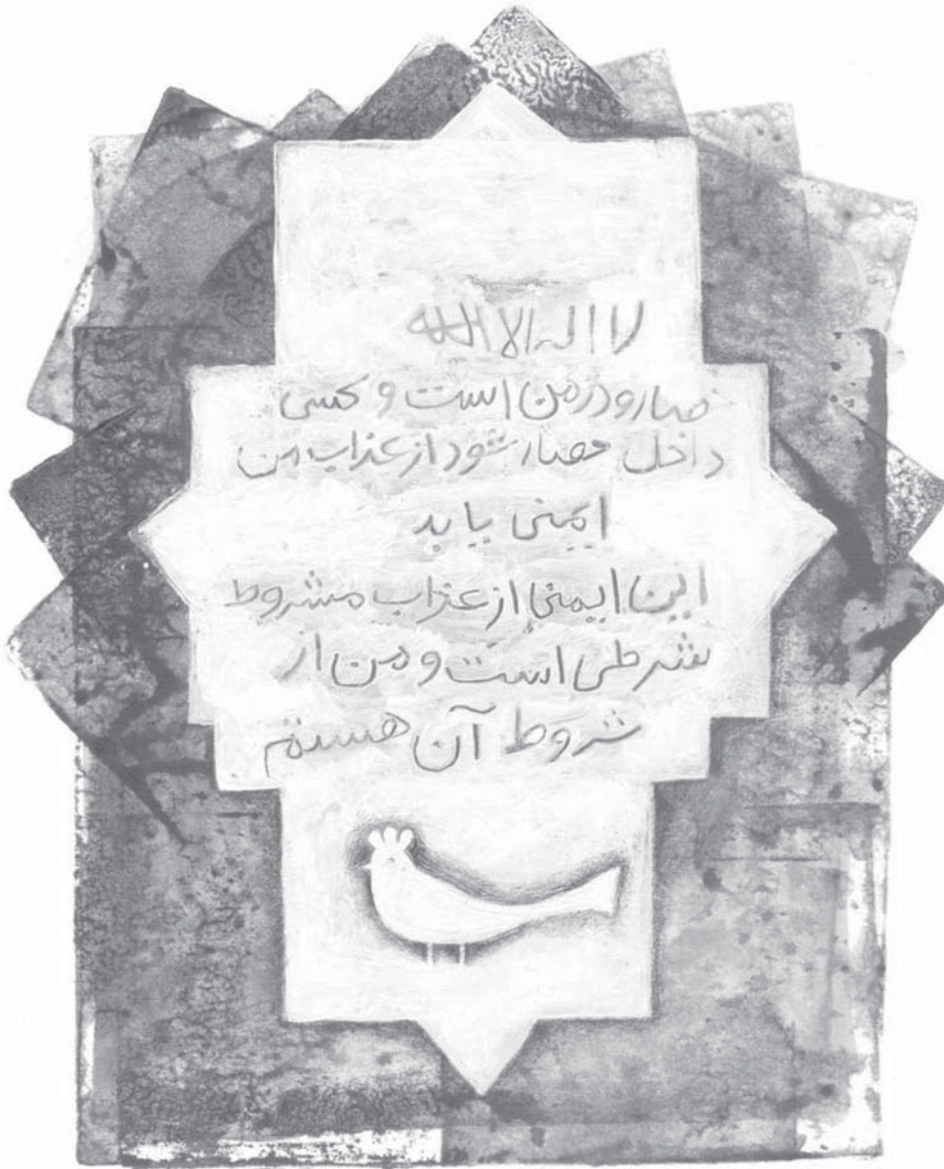 لا اله الا الله
حصار و دژ من است و کسی
داخل حصار شود از عذاب من
ایمنی یابد
این ایمنی از عذاب مشروط
شرطی است و من از
شروط آن هستم